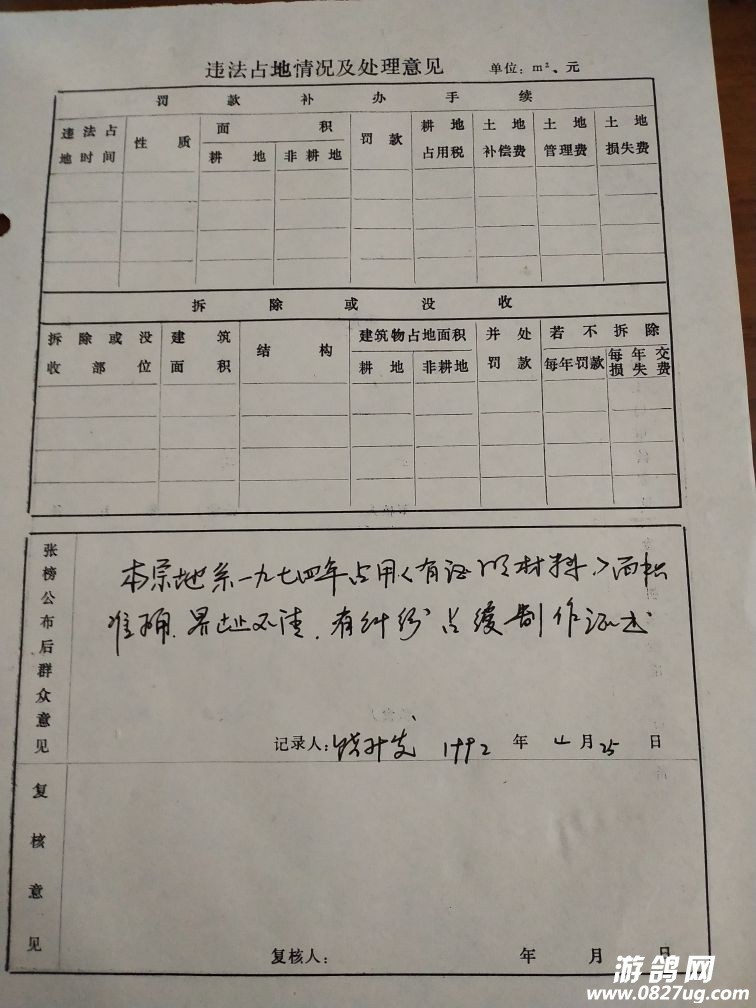 违法占地情况及处理意见 单位：m²、元
罚款补办手续
违法占地时间 性质 面积 罚款 耕地占用税 土地补偿费 土地管理费 土地损失费
耕地 非耕地
拆除或没收
拆除或没收部位 建筑面积 结构 建筑物占地面积 并处罚款 若不拆除
耕地 非耕地 每年罚款 每年交损失费
张榜公布后群众意见
本宗地系一九七四年占用（有证明材料）面积
准确．界址不清．有纠纷 制作证书
记录人： 1992 年 4 月 25 日
复核意见
复核人： 年 月 日
游鸽网
www.0827ug.com